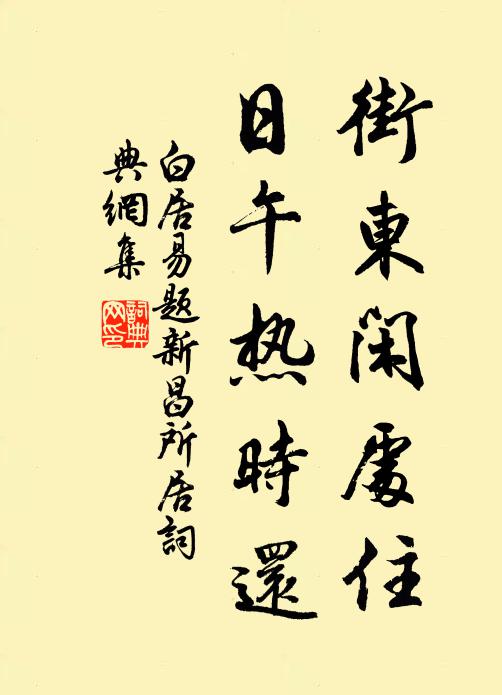 街東閑處住
日午热時還
白居易题新昌所居詞
典網集
詞典
网印